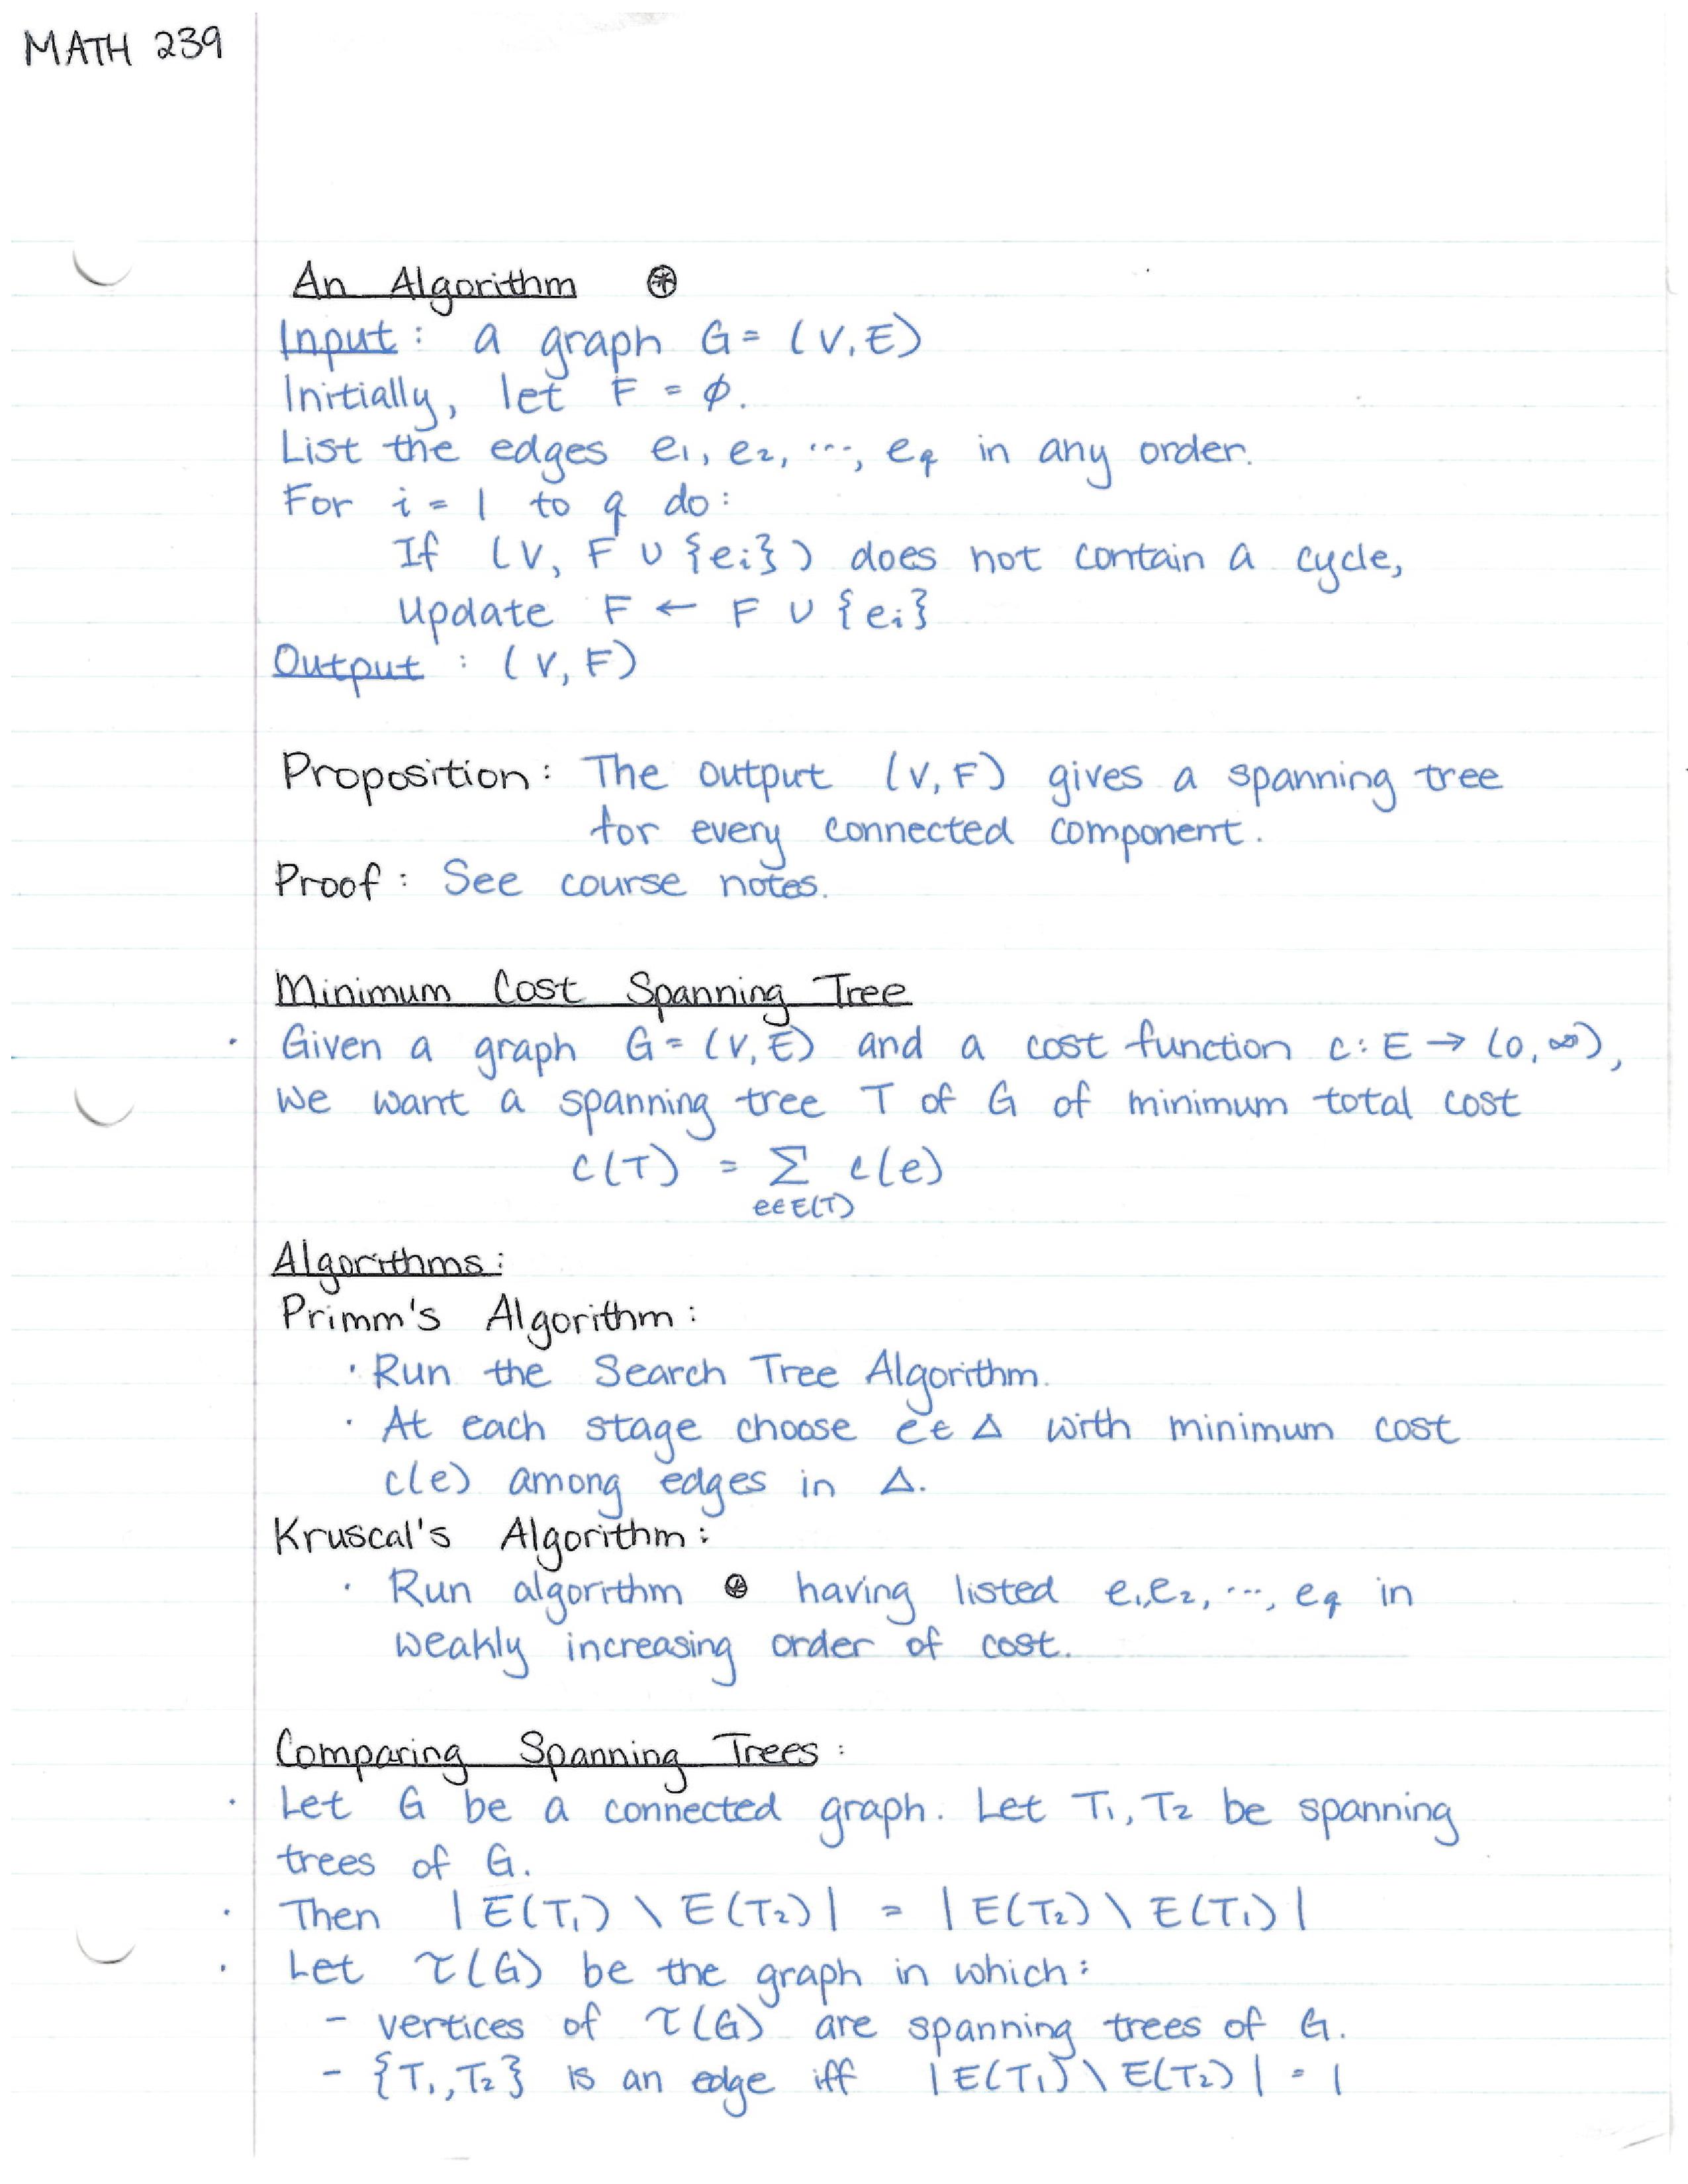 MATH 239
An Algorithm ⊛
Input: a graph G = (V, E)
Initially, let F = ∅.
List the edges e₁, e₂, ⋯, e_q in any order.
For i = 1 to q do:
If (V, F ∪ {eᵢ}) does not contain a cycle,
Update F ← F ∪ {eᵢ}
Output: (V, F)
Proposition: The output (V, F) gives a spanning tree
for every connected component.
Proof: See course notes.
Minimum Cost Spanning Tree
· Given a graph G = (V, E) and a cost function c: E → (0, ∞),
We want a spanning tree T of G of minimum total cost
c(T) = Σ c(e)
e∈E(T)
Algorithms:
Primm's Algorithm:
· Run the Search Tree Algorithm.
· At each stage choose e ∈ Δ with minimum cost
c(e) among edges in Δ.
Kruscal's Algorithm:
· Run algorithm ⊛ having listed e₁, e₂, ⋯, e_q in
weakly increasing order of cost.
Comparing Spanning Trees:
· Let G be a connected graph. Let T₁, T₂ be spanning
trees of G.
· Then |E(T₁) \ E(T₂)| = |E(T₂) \ E(T₁)|
· Let τ(G) be the graph in which:
- vertices of τ(G) are spanning trees of G.
- {T₁, T₂} is an edge iff |E(T₁) \ E(T₂)| = 1